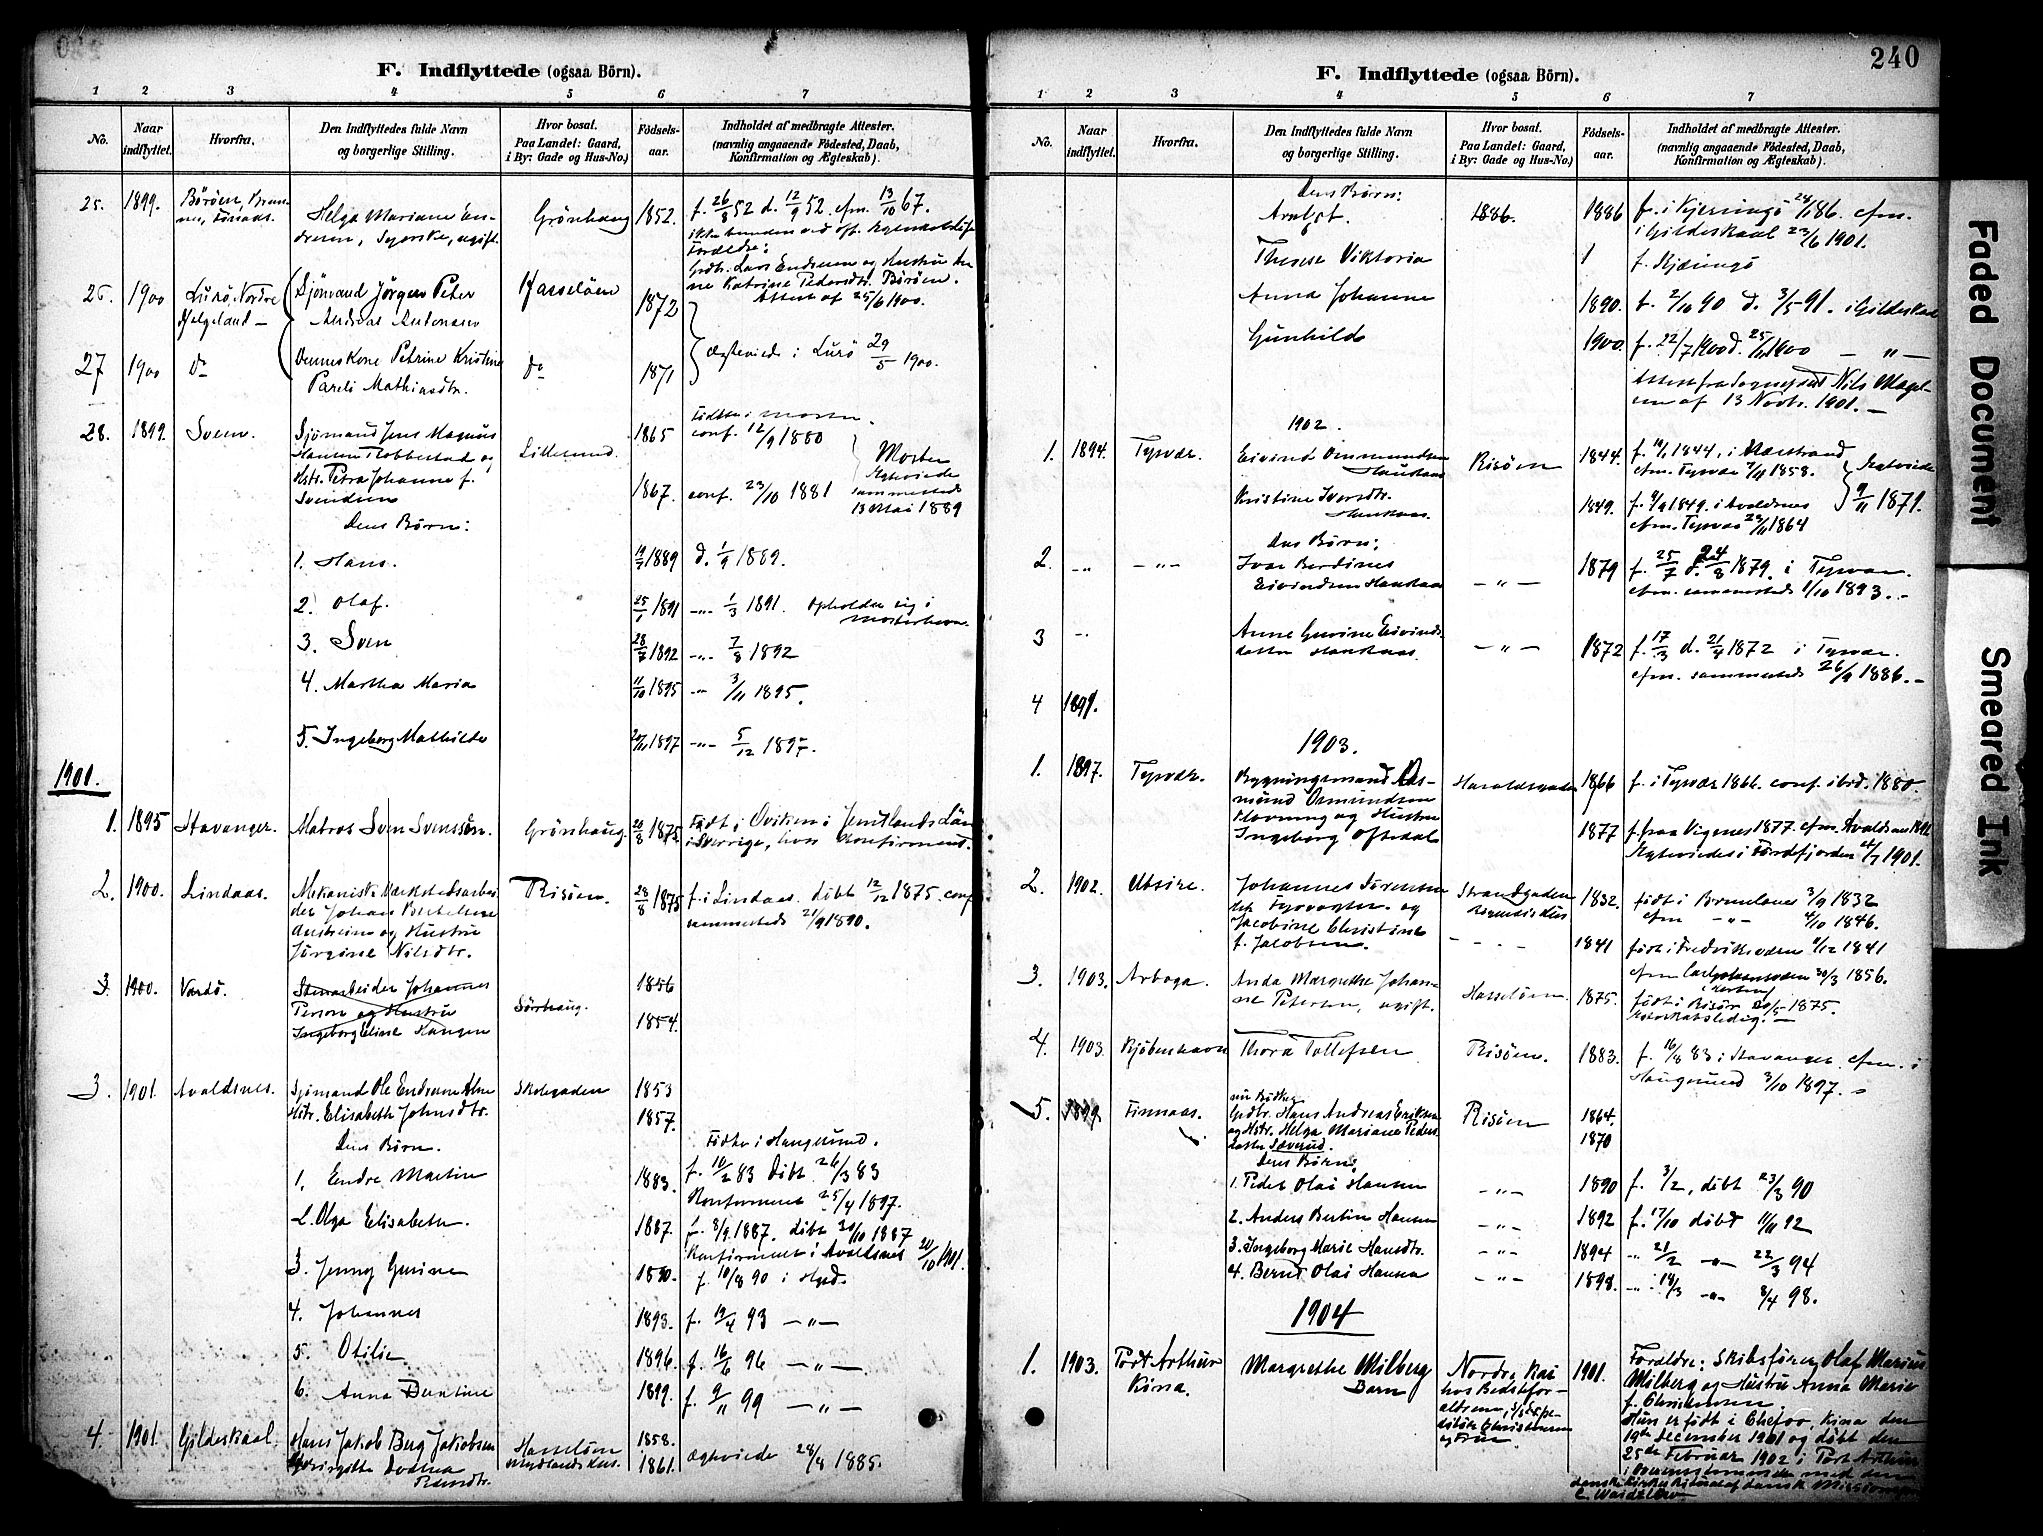 F. Indflyttede (ogsaa Börn).
1 2 3 4 5 6 7
No. Naar indflyttet. Hvorfra. Den Indflyttedes fulde Navn og borgerlige Stilling. Hvor bosat. Paa Landet: Gaard, i By: Gade og Hus-No.) Födsels-aar. Indholdet af medbragte Attester. (navnlig angaaende Födested, Daab, Konfirmation og Ægteskab).
25. 1899. Böröen, Finaas. Helga Mariane En-
Grönhaug 1852. f. 26/8 52 d. 12/9 52. cfm. 13/10 67.
Forældre:
Gdbr. Lars Endresen og Hustru
Katrine Pedersdtr. Böröen.
Attest af 25/6 1900.
26. 1900 Lurö, Nordre Helgeland – Sjömand Jörgen Peter
Andreas Antonsen Hasselöen 1872
Ægteviede i Lurö 29/5 1900.
27 1900 do Dennes Kone Petrine Kristine
Pareli Mathiasdtr. do 1871
28. 1899. Sveen. Sjömand Jens Magnus
Hansen Flobbestad og
Hstr. Petra Johanne f.
Svendsen
Lillesund. 1865 conf. 12/9 1880
1867. conf. 23/10 1881
Moster
Ægteviede
sammesteds
13 Mai 1889
Deres Börn:
1. Hans. 1889 d. 1/9 1889.
2. Olaf. 25/1 1891 -„- 1/3 1891. Opholder sig i
Mosterhavn
3. Sven 28/7 1892 -„- 7/8 1892
4. Martha Maria 11/10 1895 -„- 3/11 1895.
5. Ingeborg Mathilde 1897 -„- 5/12 1897.
1901.
1. 1895 Stavanger. Matros Sven Svenssön. Grönhaug. 1875 Födt i Oviken i Jemtlands Län
i Sverrige, hvor konfirmeret.
2. 1900. Lindaas. Mekanisk Værkstedsarbei-
der Johan Bertelsen
og Hustru
Jörgine Nilsdtr.
Risöen. 28/8 1875 f. i Lindaas. döbt 12/12 1875. conf
sammesteds 21/9 1890.
3. 1900. Vardö. Stenarbeider Johannes
Person og Hustru
Ingeborg Eline Haugen
Sörhaug. 1856
1854.
3. 1901. Avaldsnes. Sjömand Ole Endresen
Hstr. Elisabeth Johnsdtr. Skolegaden 1853
1857.
Deres Börn. Födte i Haugesund.
1. Endre Martin 1883. f. 10/2 83 döbt 26/3 83
Konfirmeret 25/4 1897.
2. Olga Elisabeth. 1887. f. 8/9 1887. döbt 30/10 1887
Konfirmeret i Avaldsnes 20/10 1901.
3. Jenny Gurine 1890. f. 10/8 90 i Hgsd.
4. Johannes 1893. f. 19/4 93 –„–
5. Otilie 1896. f. 16/6 96 –„–
6. Anna Berntine 1899. f. 9/11 99 –„–
4. 1901 Gildeskaal. Hans Jakob Berg Jakobsen
Pedersdtr.
Hasselöen 1858.
1861. Ægteviede 28/8 1885.
240
F. Indflyttede (ogsaa Börn).
1 2 3 4 5 6 7
No. Naar indflyttet. Hvorfra. Den Indflyttedes fulde Navn og borgerlige Stilling. Hvor bosat. Paa Landet: Gaard, i By: Gade og Hus-No.) Födsels-aar. Indholdet af medbragte Attester. (navnlig angaaende Födested, Daab, Konfirmation og Ægteskab).
Deres Börn:
Arnljot. 1886. 1886 f. i Kjeringö 86. cfm.
i Gildeskaal 23/6 1901.
Therese Viktoria f. Kjæringö
Anna Johanne 1890. f. 2/10 90 d. 3/5 91. i Gildeskaal
Gunhilde 1900. f. 22/7 1900 d. 1900 –„–
Attest fra Sognepræst Nils Magel-
sen af 13 Novbr. 1901.–
1902.
1. 1894. Tysvær. Eivind Ommundsen
Haukaas Risöen 1844. cfm. Tysvær 1858.
Kristine Iversdtr.
Haukaas. 1849. f. 1849. i Avaldsnes
cfm. Tysvær 1864
Ægteviede
9/11 1871.
Deres Börn:
2. -„- –„– Ivar Berdines
Eivindsen Haukaas –„– 1879 f. 25/7 d. 24/8 1879. i Tysvær.
cfm. sammesteds 1/10 1893.–
3 -„- Anne Gurine Eivinds-
datter Haukaas –„– 1872 f. 17/3 d. 21/4 1872 i Tysvær.
cfm. sammesteds 26/9 1886.–
4 1891.
1903.
1. 1897. Tysvær. Bygningsmand Aas-
mund Osmundsen
Hovning og Hustru
Ingeborg Oftedal
Haraldsgaden 1866 f. i Tysvær 1866. conf. ibid. 1880.
1877 f. paa Vigenes 1877. cfm. Avaldsnes 1892
Ægteviedes i Fördefjorden 1901.
2. 1902. Utsire. Johannes Sörensen
Fyrvogter og
Jacobine Christine
f. Jacobsen.
Strandgaden
1832. födt i Brunlanes 3/9 1832
cfm –„– 4/10 1846.
1841 födt i Fredriksværn 1/12 1841
cfm 30/3 1856.
3. 1903. Arboga. Anda Margrethe Johan-
ne Petersen, ugift. Hasselöen. 1875. födt i Risör 20/5 1875.
Ægteskabsledig.–
4. 1903. Kjöbenhavn Thora Tollefsen Risöen. 1883. f. 16/8 83 i Stavanger. cfm. i
Haugesund 3/10 1897.
5. 1899. Finnaas. Gdbr. Hans Andreas Eriksen
og Hstr. Helga Mariane Peders-
datter Sæverud. Risöen 1864.
1870
Deres Börn:
1. Peder Olai Hansen –„– 1890 f. 3/2, döbt 23/3 90
2. Anders Bertin Hansen –„– 1892 f. 17/10 döbt 11/11 92
3. Ingeborg Marie Hansdtr. –„– 1894 „ 21/2 –„– 22/3 94
4. Bernt Olai Hansen –„– 1898. –„– 18/3 –„– 8/4 98.
1904
1. 1903. Port Arthur
Kina. Margrethe Milberg
Barn Nordre Kai
hos Bedstefor-
ældrene,
Christensen
og Frue 1901. Forældre: Skibsförer Olaf Marius
Milberg og Hustru Anna Marie
f. Christensen.
Hun er födt i Chefoo, Kina den
19de December 1901 og döbt den
25de Februar 1902 i Port Arthur
i Overensstemmelse med den
danske Kirkes Ritual af dansk Missionær
C. Waidtlöw
Faded Document
Smeared Ink